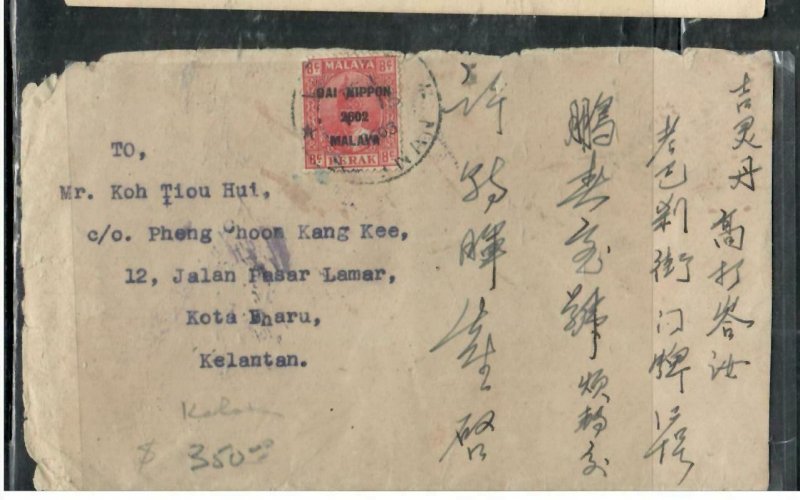 8c MALAYA 8c
DAI NIPPON
2602
MALAYA
8c PERAK 8c
TO,
Mr. Koh Tiou Hui,
c/o. Pheng Choon Kang Kee,
12, Jalan Pasar Lamar,
Kota Bharu,
Kelantan.
$ 350.00
吉灵丹 高打峇汝
老巴刹街门牌
鹏春 號 烦转交
许 暉先生 启